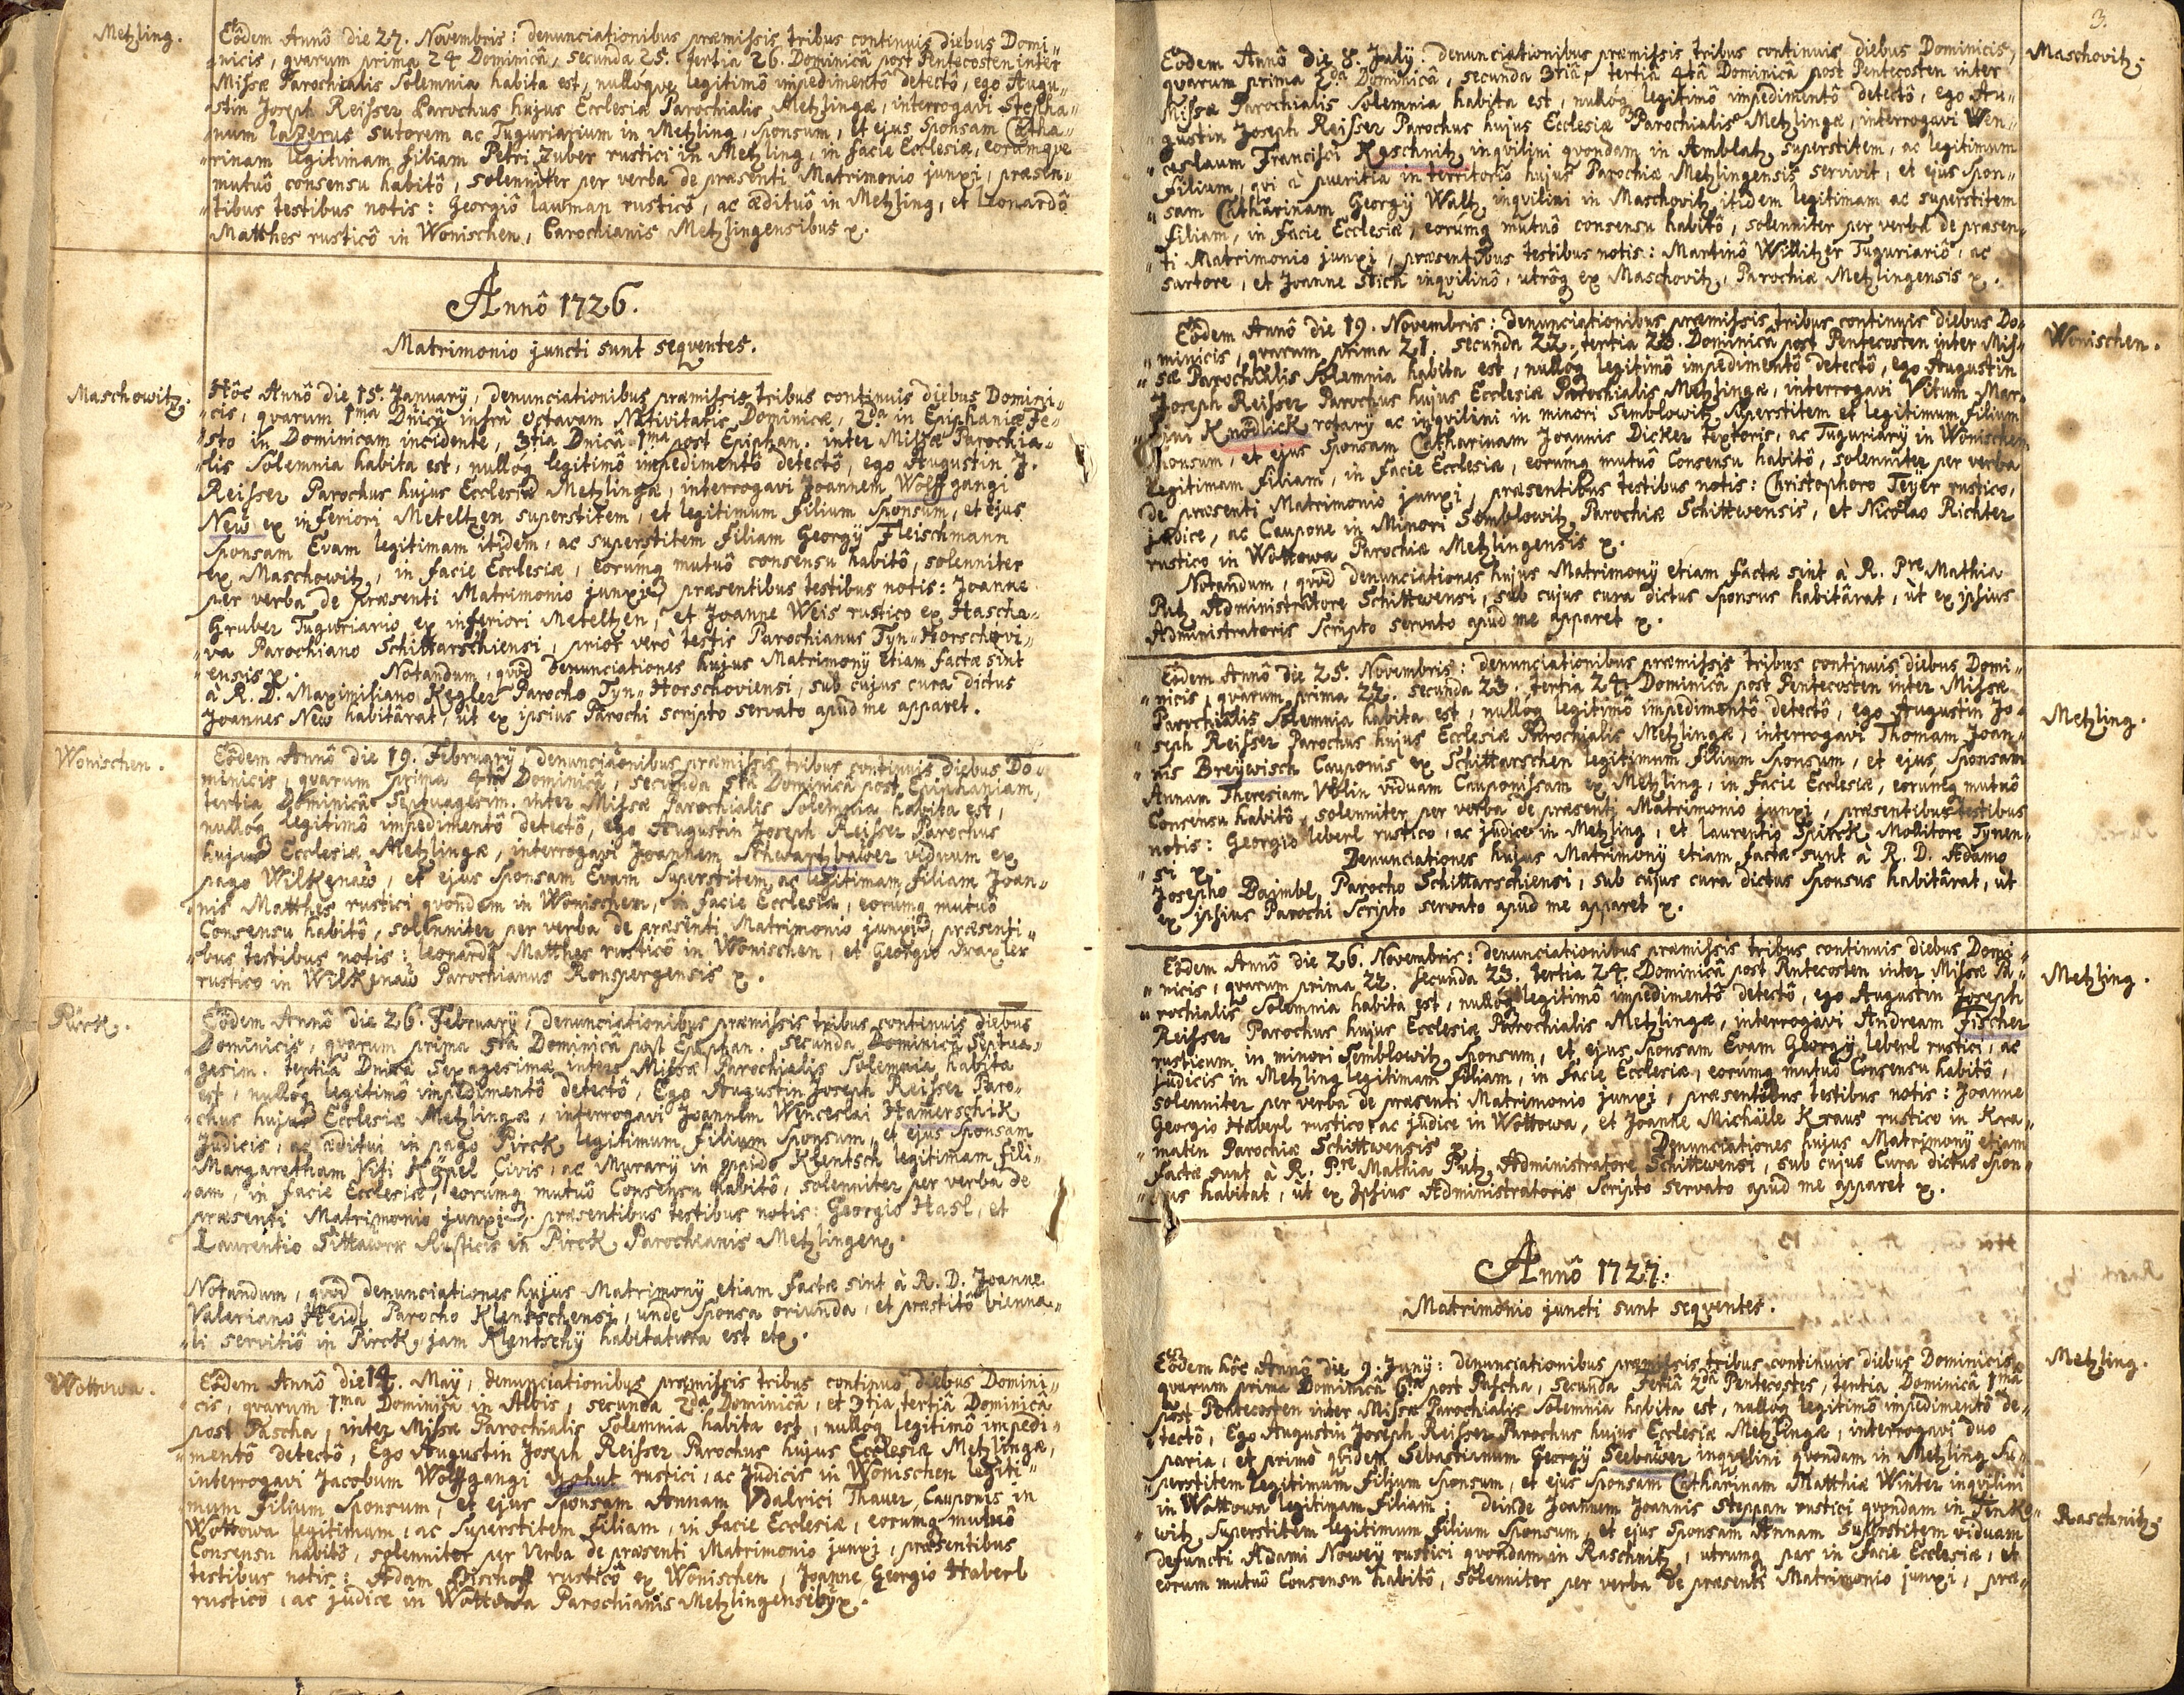 Metzling.
Eôdem Annô die 27. Novembris: denunciationibus præmissis tribus continuis diebus Domi„
„nicis, qvarum prima 24 Dominicâ, secunda 25. tertia 26. Dominicâ post Pentecosten inter
Missæ Parochialis Solemnia habita est, nullóqve legitimô impedimentô detectô, ego Augu„
„stin Joseph Reisser Parochus hujus Ecclesiæ Parochialis Metzlingæ, interrogavi Stepha„
„num Lazerus sutorem ac Tuguriarium in Metzling, Sponsum, et ejus Sponsam Catha„
„rinam legitimam filiam Petri Zuber rustici in Metzling, in facie Ecclesiæ, eorumqve
mutuô consensu habitô, solenniter per verba de præsenti Matrimonio junxi, præsen„
„tibus testibus notis: Georgiô Lawman rusticô, ac ædituô in Metzling, et Leonardô
Matthes rusticô in Wonischen, Parochianis Metzlingensibus x.
Annô 1726.
Matrimonio juncti sunt seqventes.
Maschowitz.
Hôc Annô die 15. January, denunciationibus præmissis tribus continuis diebus Domini„
„cis, qvarum 1ma Dnicâ infrà Octavam Nativitatis Dominicæ, 2da in Epiphaniæ Fe„
„sto in Dominicam incidente, 3tia Dnicâ 1ma post Epiphan. inter Missæ Parochia„
„lis Solemnia habita est, nullóq legitimô impedimentô detectô, ego Augustin J.
Reisser Parochus hujus Ecclesiæ Metzlingæ, interrogavi Joannem Wolffgangi
New ex inferiori Meteltzen superstitem, et legitimum filium Sponsum, et ejus
Sponsam Evam legitimam itidem, ac superstitem filiam Georgÿ Fleischmann
ex Maschowitz, in facie Ecclesiæ, eorúmq mutuô consensu habitô, solenniter
per verba de præsenti Matrimonio junxi, præsentibus testibus notis: Joanne
Gruber Tuguriario ex inferiori Meteltzen, et Joanne Weis rustico ex Hascha„
„va Parochiano Schittarschiensi, prior verò testis Parochianus Tyn„Horschovi„
„ensis x. Notandum, qvod denunciationes hujus Matrimonÿ etiam factæ sint
à R. D. Maximiliano Kegler Parocho Tyn„Horschoviensi, sub cujus cura dictus
Joannes New habitârat, ùt ex ipsius Parochi scripto servato apud me apparet.
Wonischen.
Eôdem Annô die 19. February, denunciationibus præmissis tribus continuis diebus Do„
minicis, qvarum prima 4ta Dominicâ, secunda 5ta Dominicâ post Epiphaniam,
tertia Dominicâ Septuagesim. inter Missæ Parochialis Solemnia habita est,
nullóq legitimô impedimentô detectô, ego Augustin Joseph Reisser Parochus
hujus Ecclesiæ Metzlingæ, interrogavi Joannem Schwartzbawer viduum ex
pago Wilkenaw, et ejus Sponsam Evam Superstitem ac legitimam filiam Joan„
„nis Matthes rustici qvondam in Wonischen, in facie Ecclesiæ, eorúmq mutuô
Consensu habitô, solenniter per verba de præsenti Matrimonio junxi, præsenti„
„bus testibus notis: Leonardô Matthes rusticô in Wonischen, et Georgio Draxler
rustico in Wilkenaw Parochianus Ronspergensis x.
Pirck.
Eôdem Annô die 26. February, denunciationibus præmissis tribus continuis diebus
Dominicis, qvarum prima 5ta Dominicâ post Epiphan. secunda Dominicâ Septua„
gesim. tertia Dnicâ Sexagesimæ inter Missæ Parochialis Solemnia habita
est, nullóq legitimô impedimentô detectô, Ego Augustin Joseph Reisser Paro„
„chus hujus Ecclesiæ Metzlingæ, interrogavi Joannem Wenceslai Hamerschik
Judicis, ac æditui in pago Pirck legitimum filium Sponsum, et ejus Sponsam
Margaretham Viti Köpel Civis, ac Murarÿ in oppido Klentsch legitimam fili„
„am, in facie Ecclesiæ, eorúmq mutuô Consensu habitô, solenniter per verba de
præsenti Matrimonio junxi, præsentibus testibus notis: Georgio Hasl, et
Laurentio Sittawrr Rusticis in Pirck Parochianis Metzlingen x.
Notandum, qvod denunciationes hujus Matrimonÿ etiam factæ sint à R. D. Joanne
Valeriano Heidl Parocho Klentschensi, unde Sponsa oriunda, et præstitô bienna„
„li servitiô in Pirck, jam Klentschÿ habitatura est etx.
Wottowa.
Eôdem Annô die 14. May, denunciationibus præmissis tribus continuô diebus Domini„
cis, qvarum 1ma Dominica in Albis, secunda 2da Dominicâ, et 3tia tertiâ Dominicâ
post Pascha, inter Missæ Parochialis Solemnia habita est, nullóq legitimô impedi„
„mentô detectô, Ego Augustin Joseph Reisser Parochus hujus Ecclesiæ Metzlingæ,
interrogavi Jacobum Wolffgangi rustici, ac Judicis in Wonischen legiti„
mum filium Sponsum, et ejus Sponsam Annam Vdalrici Thauer, Cauponis in
Wottowa legitimam, ac Superstitem filiam, in facie Ecclesiæ, eorumq mutuô
Consensu habitô, solenniter per Verba de præsenti Matrimonio junxi, præsentibus
testibus notis: Adam Bischoff rusticô ex Wonischen, Joanne Georgio Haberl
rustico, ac judice in Wottowa Parochianis Metzlingensibus x.
3.
Maschovitz.
Eodem Annô die 8. July: denunciationibus præmissis tribus continuis diebus Dominicis,
qvarum prima 2da Dominicâ, secunda 3tia, tertia 4tâ Dominicâ post Pentecosten inter
Missæ Parochialis Solemnia habita est, nullóq legitimô impedimentô detectô, ego Au„
„gustin Joseph Reisser Parochus hujus Ecclesiæ Parochialis Metzlingæ, interrogavi Wen„
„ceslaum Francisci Koschnitz inqvilini qvondam in Amblatz superstitem, ac legitimum
filium, qvi à pueritia in territoriô hujus Parochiæ Metzlingensis servivit, et ejus Spon„
„sam Catharinam Georgÿ Waltz inqvilini in Maschovitz itidem legitimam ac superstitem
filiam, in facie Ecclesiæ, eorúmq mutuô consensu habitô, solenniter per verba de præsen„
„ti Matrimonio junxi, præsentibus testibus notis: Martinô Willitzer Tuguriariô, ac
sartore, et Joanne Stich inqvilinô, utróq ex Maschovitz, Parochiæ Metzlingensis x.
Wonischen.
Eôdem Annô die 19. Novembris: denunciationibus præmissis tribus continuis diebus Do„
„minicis, qvarum prima 21. secunda 22. tertia 23. Dominica post Pentecosten inter Mis„
„sæ Parochialis Solemnia habita est, nullóq legitimô impedimentô detectô, ego Augustin
Joseph Reisser Parochus hujus Ecclesiæ Parochialis Metzlingæ, interrogavi Vitum Mar„
„tini Knödlick rotarÿ ac inqvilini in minori Semblowitz superstitem et legitimum filium
Sponsum, et ejus Sponsam Catharinam Joannis Dicker textoris, ac Tuguriarÿ in Wonischen
legitimam filiam, in facie Ecclesiæ, eorúmq mutuô Consensu habitô, solenniter per verba
de præsenti Matrimonio junxi, præsentibus testibus notis: Christophoro Teÿer rustico,
judice, ac Caupone in Minori Semblowitz, Parochiæ Schittwensis, et Nicolao Richter
rustico in Wottowa Parochiæ Metzlingensis x.
Notandum, qvod denunciationes hujus Matrimonÿ etiam factæ sint à R. Pre Mathia
Putz Administratore Schittwensi, sub cujus cura dictus Sponsus habitârat, ùt ex ipsius
Administratoris Scripto servato apud me apparet x.
Metzling.
Eôdem Annô die 25. Novembris: denunciationibus præmissis tribus continuis diebus Domi„
„nicis, qvarum prima 22. secunda 23. tertia 24. Dominicâ post Pentecosten inter Missæ
Parochialis Solemnia habita est, nullóq legitimô impedimentô detectô, ego Augustin Jo„
„seph Reisser Parochus hujus Ecclesiæ Parochialis Metzlingæ, interrogavi Thomam Joan„
„nis Breÿwisch Cauponis ex Schittarschen legitimum filium Sponsum, et ejus Sponsam
Annam Theresiam Vblin viduam Cauponissam ex Metzling, in facie Ecclesiæ, eorúmq mutuô
Consensu habitô, solenniter per verba de præsenti Matrimonio junxi, præsentibus testibus
notis: Georgio Leberl rustico, ac judice in Metzling, et Laurentio Spirck Molitore Tynen„
„si x. Denunciationes hujus Matrimonÿ etiam factæ sunt à R. D. Adamo
Josepho Boimbl, Parocho Schittarschiensi, sub cujus cura dictus Sponsus habitârat, ut
ex ipsius Parochi Scripto servato apud me apparet x.
Metzling.
Eôdem Annô die 26. Novembris: denunciationibus præmissis tribus continuis diebus Domi„
„nicis, qvarum prima 22. secunda 23. tertia 24. Dominicâ post Pentecosten inter Missæ Pa„
„rochialis Solemnia habita est, nullóq legitimô impedimentô detectô, ego Augustin Joseph
Reisser Parochus hujus Ecclesiæ Parochialis Metzlingæ, interrogavi Andream Fischer
rusticum in minori Semblowitz Sponsum, et ejus Sponsam Evam Georgÿ Leberl rustici, ac
judicis in Metzling legitimam filiam, in facie Ecclesiæ, eorúmq mutuô Consensu habitô,
solenniter per verba de præsenti Matrimonio junxi, præsentibus testibus notis: Joanne
Georgio Haberl rustico, ac judice in Wottowa, et Joanne Michäele Kraus rustico in Kra„
„matin Parochiæ Schittwensis Denunciationes hujus Matrimonÿ etiam
factæ sunt à R. Pre Mathia Putz Administratore Schittwensi, sub cujus Cura dictus Spon„
„sus habitat, ùt ex Ipsius Administratoris Scripto servato apud me apparet x.
Annô 1727.
Matrimonio juncti sunt seqventes.
Metzling.
Eôdem hôc Annô die 9. Junÿ: denunciationibus præmissis tribus continuis diebus Dominicis,
qvarum prima Dominicâ 6ta post Pascha, secunda Feriâ 2dâ Pentecostes, tertia Dominicâ 1ma
post Pentecosten inter Missæ Parochialis Solemnia habita est, nullóq legitimô impedimentô de„
„tectô, Ego Augustin Joseph Reisser Parochus hujus Ecclesiæ Metzlingæ, interrogavi duo
paria, et primò qvidem Sebastianum Georgÿ Seebawer inqvilini qvondam in Metzling Su„
„perstitem legitimum filium Sponsum, et ejus Sponsam Catharinam Matthiæ Winter inqvilini
in Wottowa legitimam filiam: deinde Joannem Joannis Steppan rustici qvondam in Tinko„
Raschnitz.
„witz Superstitem legitimum filium Sponsum, et ejus Sponsam Annam Superstitem viduam
defuncti Adami Noweÿ rustici qvondam in Raschnitz, utrumq par in facie Ecclesiæ, et
eorum mutuô Consensu habitô, solenniter per verba de præsenti Matrimonio junxi, præ„